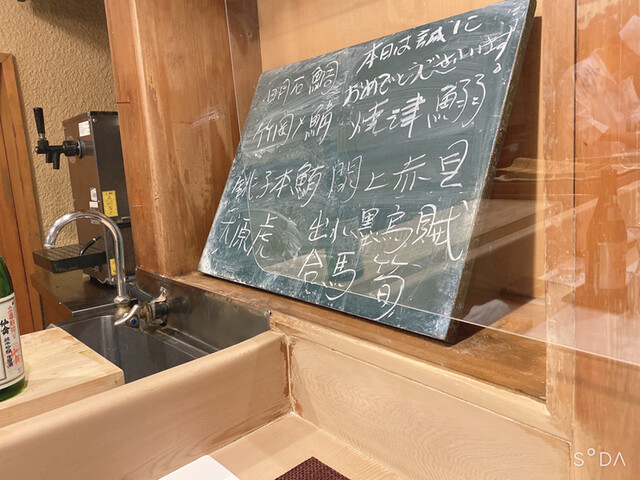 本日は誠に
おめでとうございます。
明石鯛
竹岡〆鯖 焼津鰯
銚子本鮪 閖上赤貝
大原虎 出水墨烏賊
合馬筍
SODA